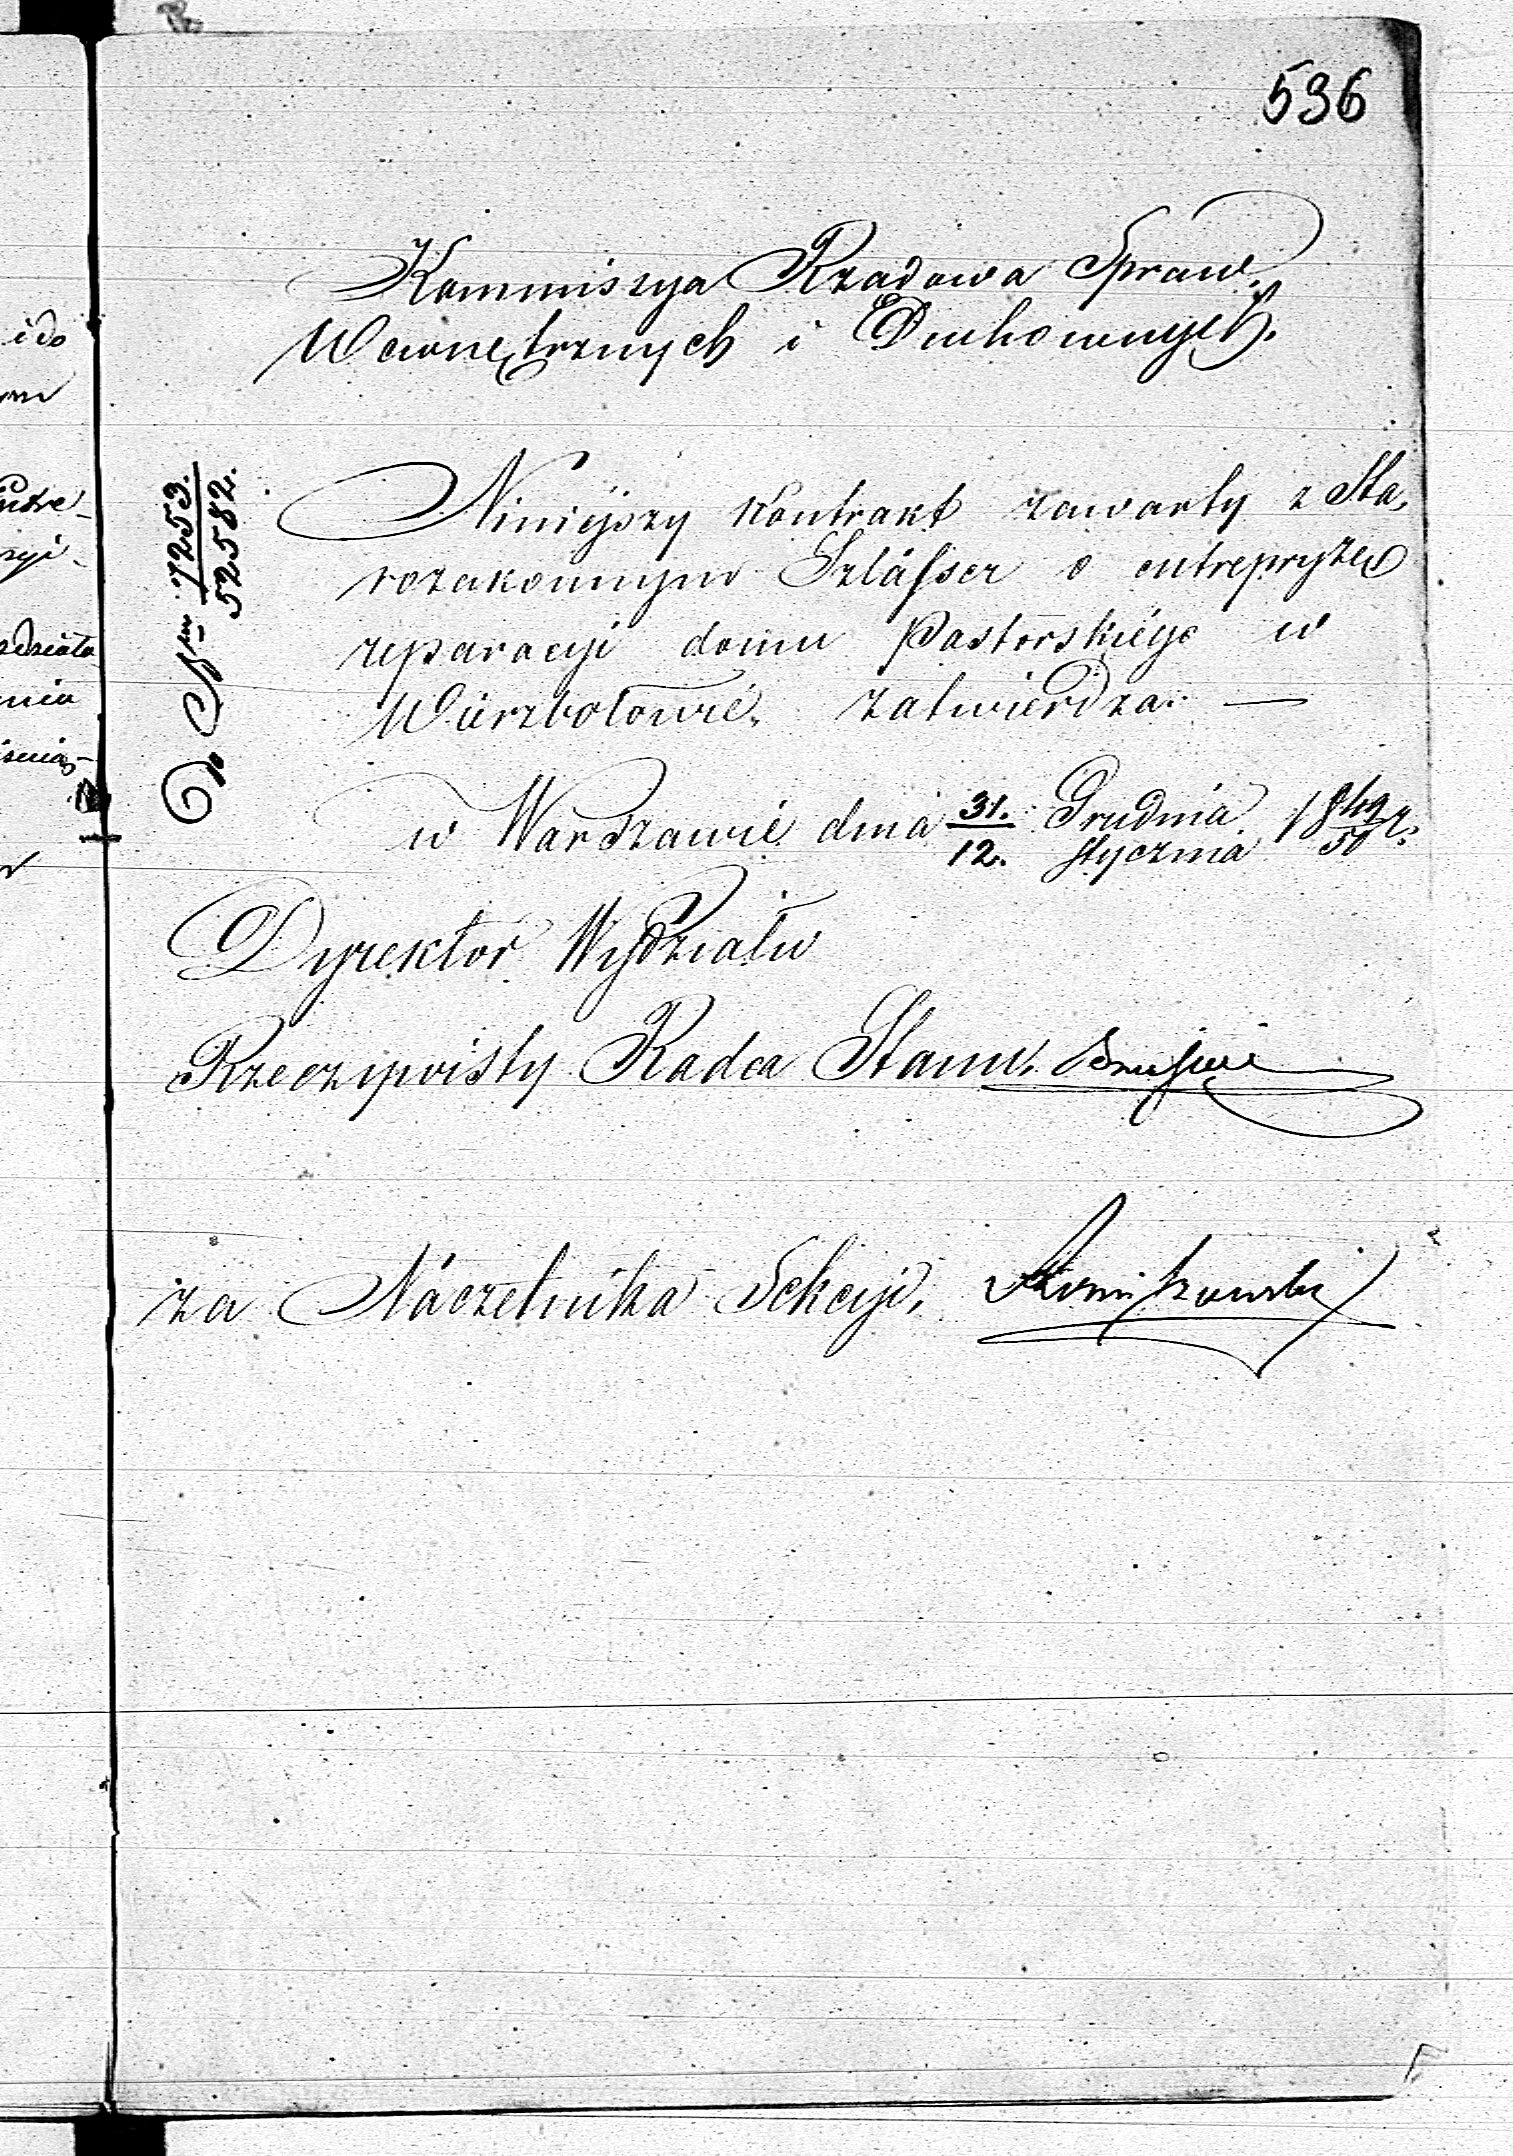 536
Kommissya Rządowa Spraw
Wewnętrznych i Duchownych.
Do Nru 7253.
52582.
Niniejszy kontrakt zawarty z Sta,
rozakonnym Szláfser o entrepryzę
reparacyi domu Pastorskiégo w
Wierzbołowie, zatwierdza. —
w Warszawie dnia 31. Grudnia 1849 r.
12. Stycznia 50
Dyrektor Wydziału
Rzeczywisty Radca Stanu,
za Naczelnika Sekcyi,
i do